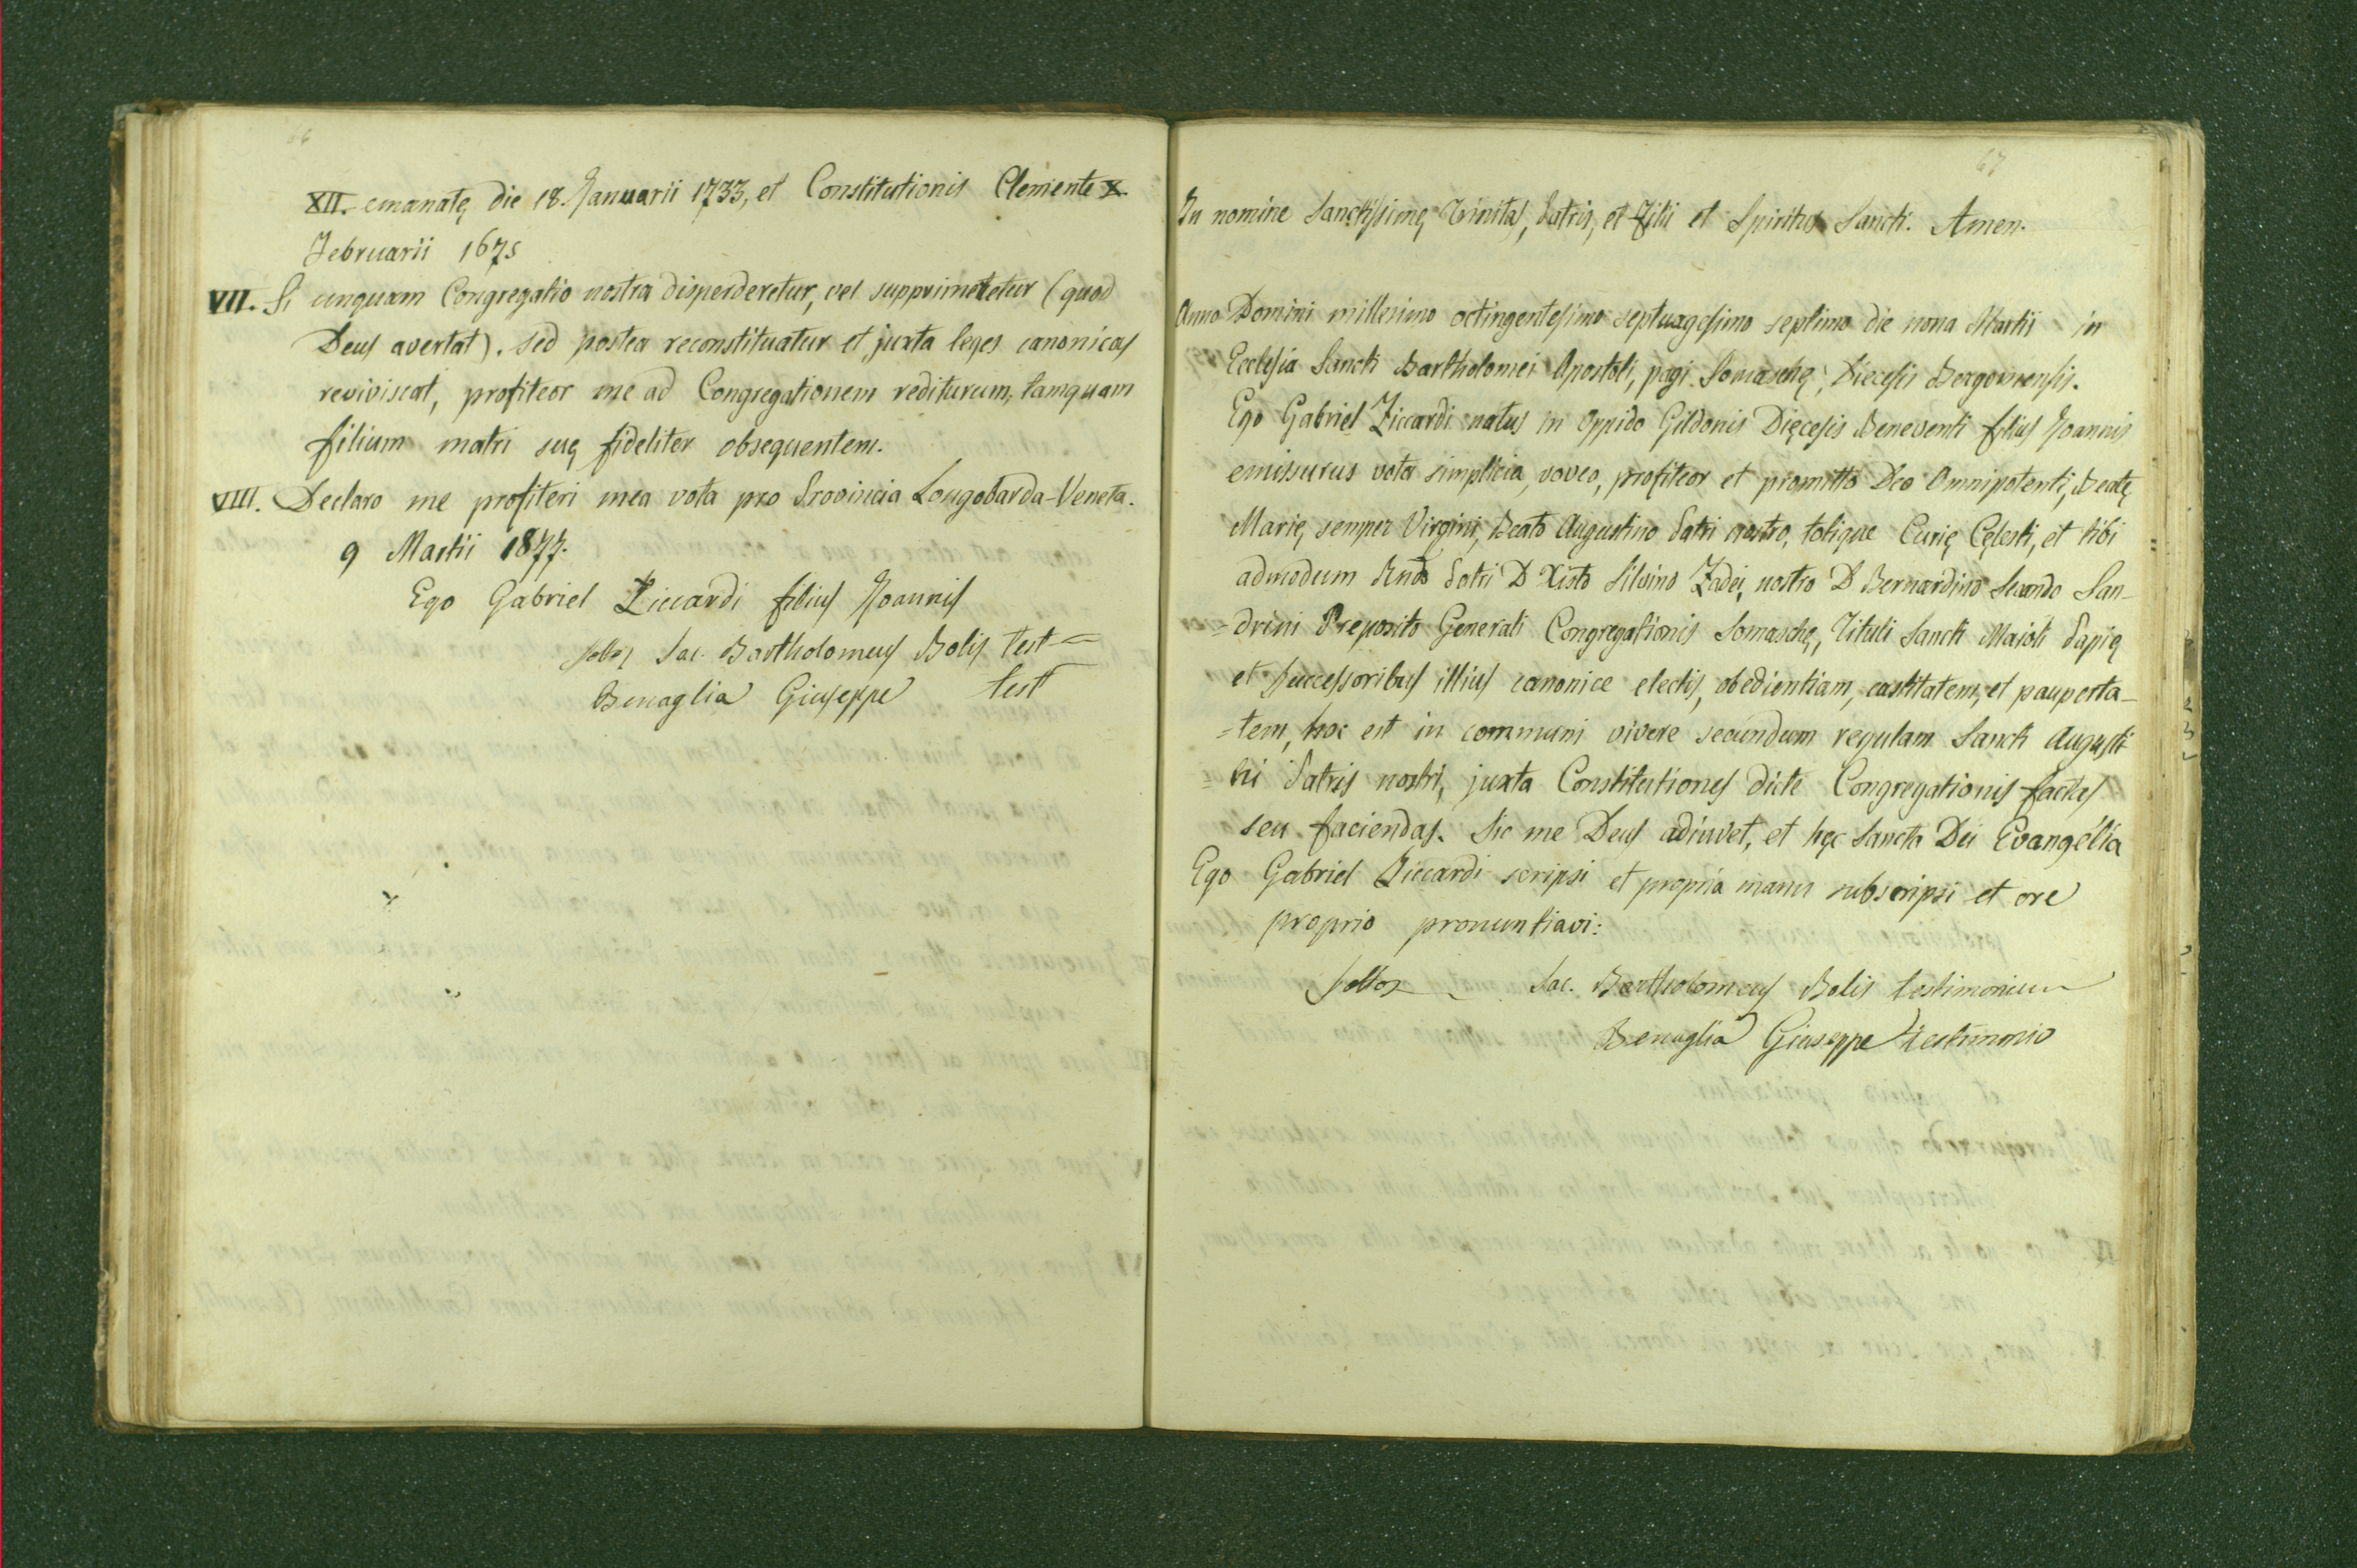 66
XII. emanatę die 18. Januarii 1733, et Constitutionis Clemente X.
Februarii 1675
VII. Si unquam Congregatio nostra disperderetur, vel supprimeretur (quod
Deus avertat). sed postea reconstituatur et juxta leges canonicas
reviviscat, profiteor me ad Congregationem rediturum, tamquam
filium matri suę fideliter obsequentem.
VIII. Declaro me profiteri mea vota pro Provincia Longobarda-Veneta.
9 Martii 1877.
Ego Gabriel Ziccardi filius Joannis
Sac. Bartholomeus Bolis test
Benaglia Giuseppe test
67
In nomine Sanctissimę Trinitas, Patris, et Filii et Spiritus Sancti. Amen.
Anno Domini millesimo octingentesimo septuagesimo septimo die nona Martii in
Ecclesia Sancti Bartholomei Apostoli, pagi Somaschę, Diecesis Bergomensis.
Ego Gabriel Ziccardi natus in oppido Gildonis Dięcesis Beneventi filius Joannis
emissurus vota simplicia, voveo, profiteor et promitto Deo Omnipotenti, Beatę
Marię, semper Virgini, Beato Augustino Patri nostro, totique Curię Cęlesti, et tibi
admodum Rndo Patri D. Xisto Silvino Zadei, nostro D. Bernardino Secondo San-
=drini Preposito Generali Congregationis Somaschę, Tituli Sancti Majoli Papię
et Successoribus illius canonice electis, obedientiam, castitatem, et pauperta-
=tem, hoc est in communi vivere secundum regulam Sancti Augusti
=ni Patris nostri, juxta Constitutiones dicte Congregationis factas
seu faciendas. Sic me Deus adiuvet, et hęc Sancta Dei Evangélia
Ego Gabriel Ziccardi scripsi et propria manu subscripsi et ore
proprio pronuntiavi:
Sac. Bartholomeus Bolis testimonium
Benaglia Giuseppe testimonio